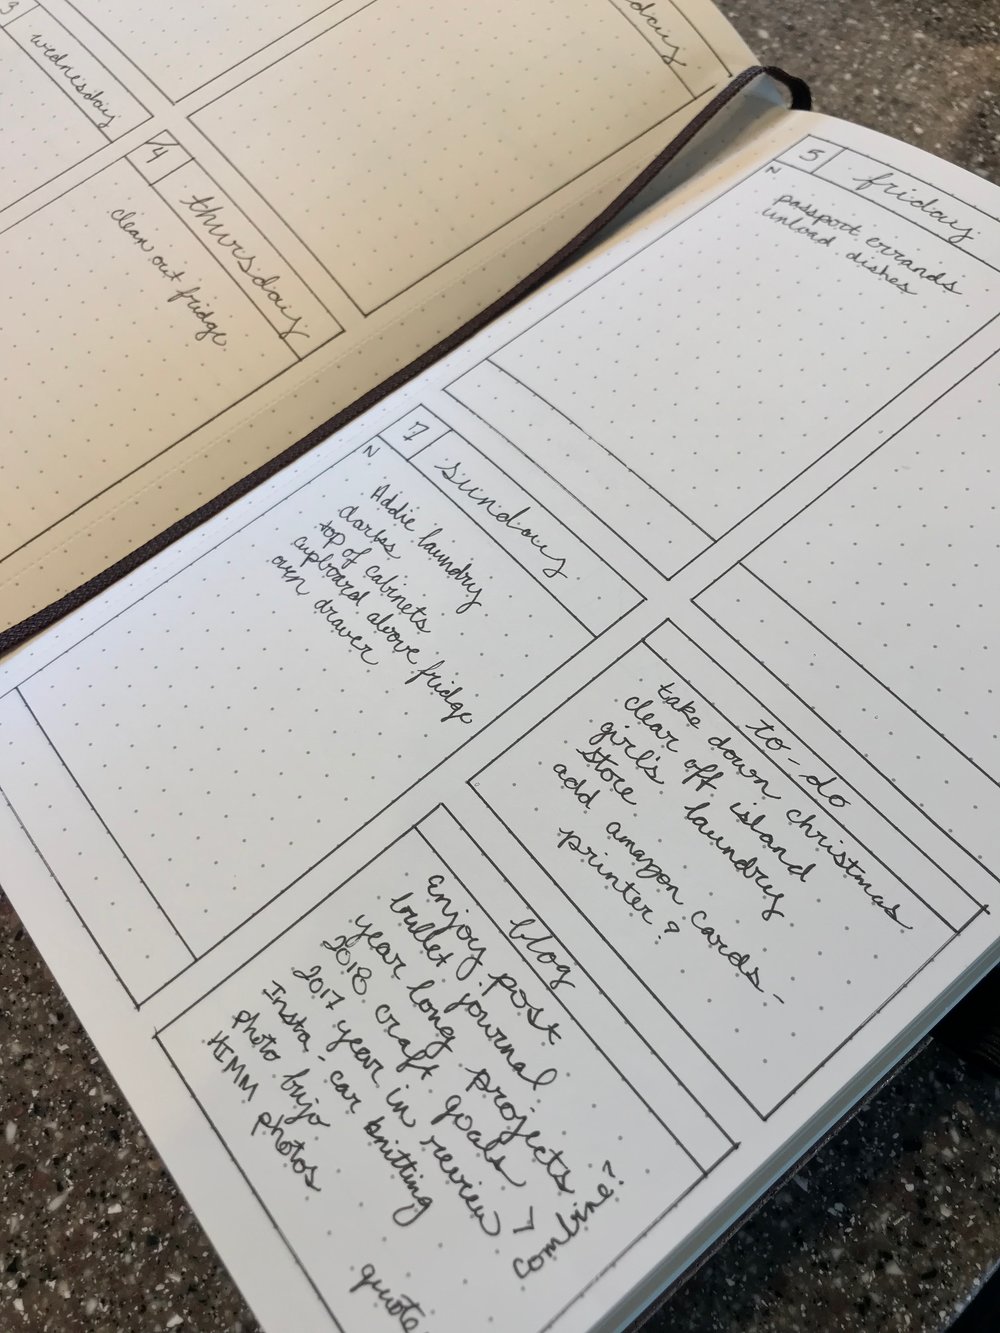 3
wednesday
day
4
thursday
clean out fridge
5
friday
N
passport errands
unload dishes
7
sunday
N
Addie laundry
darks
top of cabinets
cupboard above fridge
oven drawer
to-do
take down christmas
clear off island
girl's laundry
store
add amazon cards -
printer?
blog
Enjoy post
bullet journal
year long projects
2018 craft goals
2017 year in review > combine?
Insta - car knitting
photo bujo
HIMM photos
quote